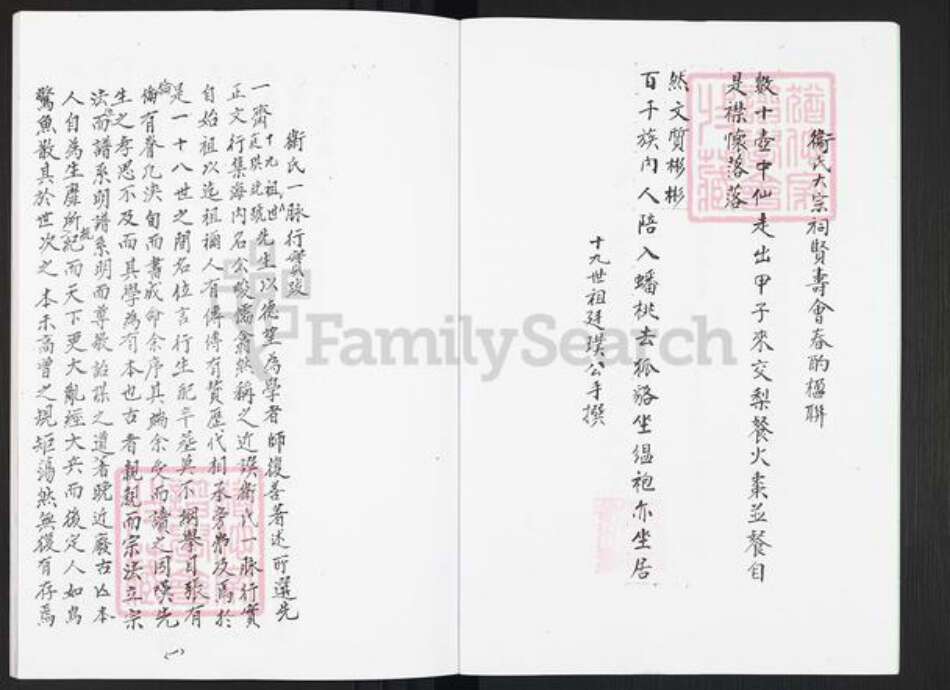 衛氏大宗祠賢壽會春酌楹聯
數十壺中仙走出甲子來交梨餐火棗並餐自
是襟懷落落
百千族內人陪入蟠桃去狐貉坐縕袍亦坐居
然文質彬彬
十九世祖廷璞公手撰
衛氏一脉行實攷
一齋十九世祖廷璞先生以德望為學者師復善著述所選先
正文行集海內名公 儒翕然稱之近 衛氏一脉行實
自始祖以迄祖禰人有傳傳有贊歷代相承旁 及焉於
是一十八世之間名位言行生配卒塟莫不綱舉目張有
倫有脊凡浹旬而書成命余序其端余受而讀之因嘆先
生之孝思不及而其學為有本也古者親親而宗法立宗
法而譜系明譜系明而尊敬 之道著晚近廢古 本
人自為生靡所 紀而天下更大亂經大兵而後定人如鳥
驚魚散其於世次之本末高曾之規矩蕩然無復有存焉
(一)
FamilySearch